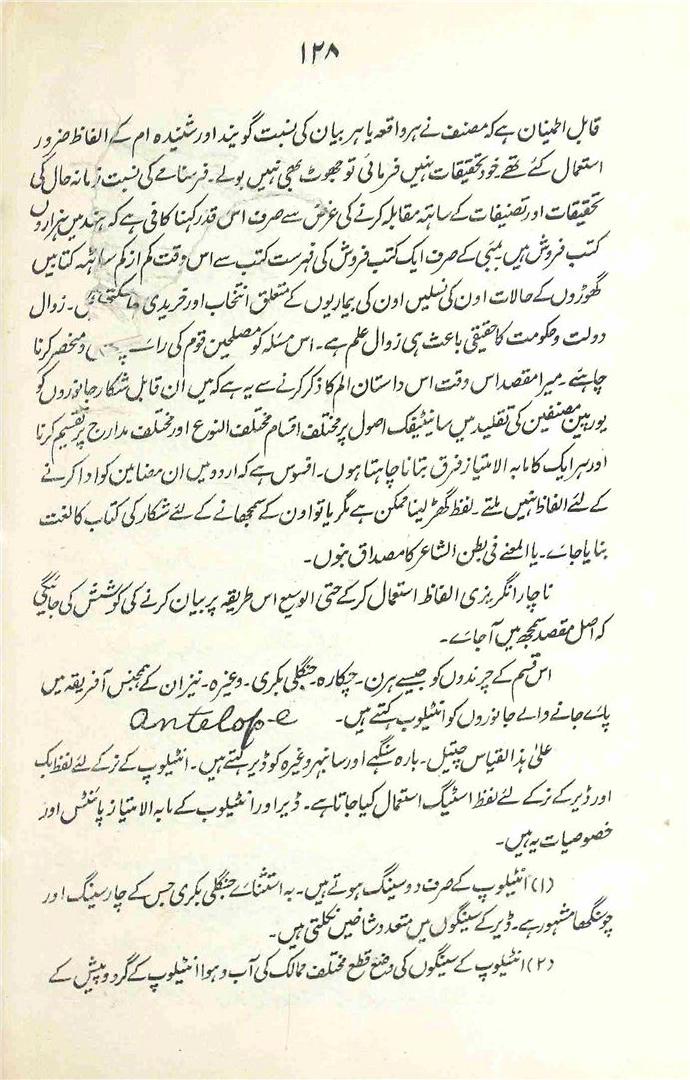 ۱۲۸
قابل اطمینان ہے کہ مصنف نے ہر واقعہ یا ہر بیان کی نسبت گویند اور شنیدہ ام کے الفاظ ضرور
استعمال کئے تھے۔ خود تحقیقات نہیں فرمائی تو جھوٹ بھی نہیں بولے۔ فرسنامے کی نسبت زمانہ حال کی
تحقیقات اور تصنیفات کے ساتھ مقابلہ کرنے کی غرض سے صرف اس قدر کہنا کافی ہے کہ ہند میں ہزاروں
کتب فروش ہیں۔ بمبئی کے صرف ایک کتب فروش کی فہرست کتب سے اس وقت کم از کم ساٹھ کتابیں
گھوڑوں کے حالات اون کی نسلیں اون کی بیماریوں کے متعلق انتخاب اور خریدی جا سکتی ہیں۔ زوال
دولت و حکومت کا حقیقی باعث ہی زوال علم ہے۔ اس مسئلہ کو مصلحین قوم کی رائے منحصر کرنا
چاہئے۔ میرا مقصد اس وقت اس داستان الم کا ذکر کرنے سے یہ ہے کہ میں ان قابل شکار جانوروں کو
یورپین مصنفین کی تقلید میں سائنٹیفک اصول پر مختلف اقسام مختلف النوع اور مختلف مدارج پر تقسیم کرنا
اور ہر ایک کا مابہ الامتیاز فرق بتانا چاہتا ہوں۔ افسوس ہے کہ اردو میں ان مضامین کو ادا کرنے
کے لئے الفاظ نہیں ملتے۔ لفظ گھڑ لینا ممکن ہے مگر یا تو اون کے سمجھانے کے لئے شکار کی کتاب کا لغت
بنایا جائے۔ یا المعنے فی بطن الشاعر کا مصداق بنوں۔
ناچار انگریزی الفاظ استعمال کر کے حتی الوسع اس طریقہ پر بیان کرنے کی کوشش کی جائیگی
کہ اصل مقصد سمجھ میں آ جائے۔
اس قسم کے چرندوں کو جیسے ہرن۔ چکارہ۔ جنگلی بکری۔ وغیرہ۔ نیز ان کے ہمجنس آفریقہ میں
پائے جانے والے جانوروں کو انٹیلوپ کہتے ہیں۔ antelope
علیٰ ہذا القیاس چیتل۔ بارہ سنگھے اور سانبھر وغیرہ کو ڈیر کہتے ہیں۔ انٹیلوپ کے نر کے لئے لفظ بک
اور ڈیر کے نر کے لئے لفظ اسٹیگ استعمال کیا جاتا ہے۔ ڈیر اور انٹیلوپ کے مابہ الامتیاز پائنٹس اور
خصوصیات یہ ہیں۔
(۱) انٹیلوپ کے صرف دو سینگ ہوتے ہیں۔ بہ استثنائے جنگلی بکری جس کے چار سینگ اور
چونگھا مشہور ہے۔ ڈیر کے سینگوں میں متعدد شاخیں نکلتی ہیں۔
(۲) انٹیلوپ کے سینگوں کی وضع قطع مختلف ممالک کی آب و ہوا انٹیلوپ کے گرد و پیش کے